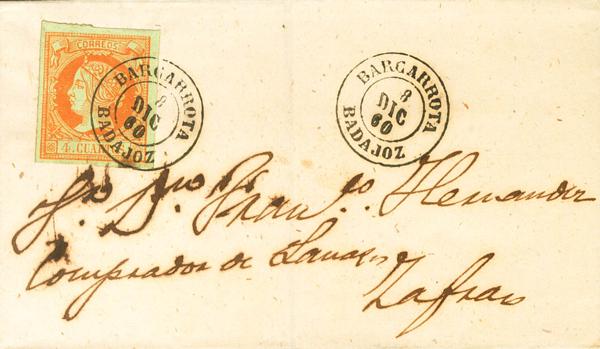 CORREOS
4. CUAR
BARCARROTA
8
DIC
60
BADAJOZ
BARCARROTA
8
DIC
60
BADAJOZ
Sr. Dn. Fran.co Hernandez
Comprador de Lanas
Zafra